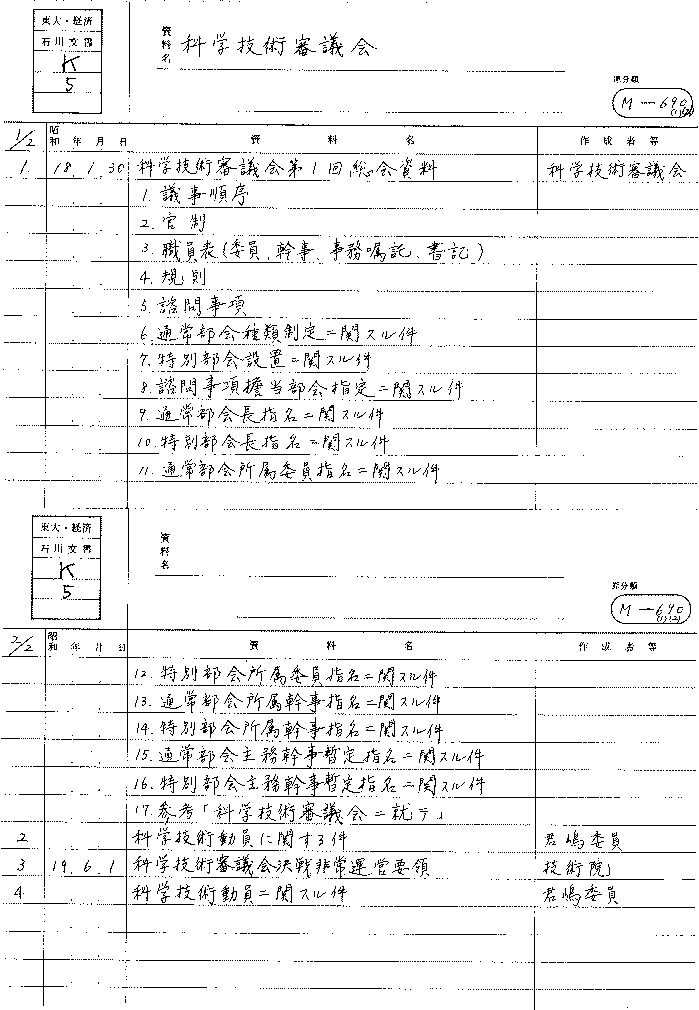 東大・経済
石川文書
K
5
資料名 科学技術審議会
原分類
M-690
(1)(2)
1/2 昭和 年 月 日 資料名 作成者等
1 18. 1. 30 科学技術審議会第1回総会資料 科学技術審議会
1. 議事順序
2. 官制
3. 職員表(委員、幹事、事務嘱託、書記)
4. 規則
5. 諮問事項
6. 通常部会種類制定ニ関スル件
7. 特別部会設置ニ関スル件
8. 諮問事項擔当部会指定ニ関スル件
9. 通常部会長指名ニ関スル件
10. 特別部会長指名ニ関スル件
11. 通常部会所属委員指名ニ関スル件
東大・経済
石川文書
K
5
資料名
原分類
M-690
(1)(2)
2/2 昭和 年 月 日 資料名 作成者等
12. 特別部会所属委員指名ニ関スル件
13. 通常部会所属幹事指名ニ関スル件
14. 特別部会所属幹事指名ニ関スル件
15. 通常部会主務幹事暫定指名ニ関スル件
16. 特別部会主務幹事暫定指名ニ関スル件
17. 参考「科学技術審議会ニ就テ」
2 科学技術動員に関する件 君嶋委員
3 19. 6. 1 科学技術審議会決戦非常運営要領 技術院」
4 科学技術動員ニ関スル件 君嶋委員